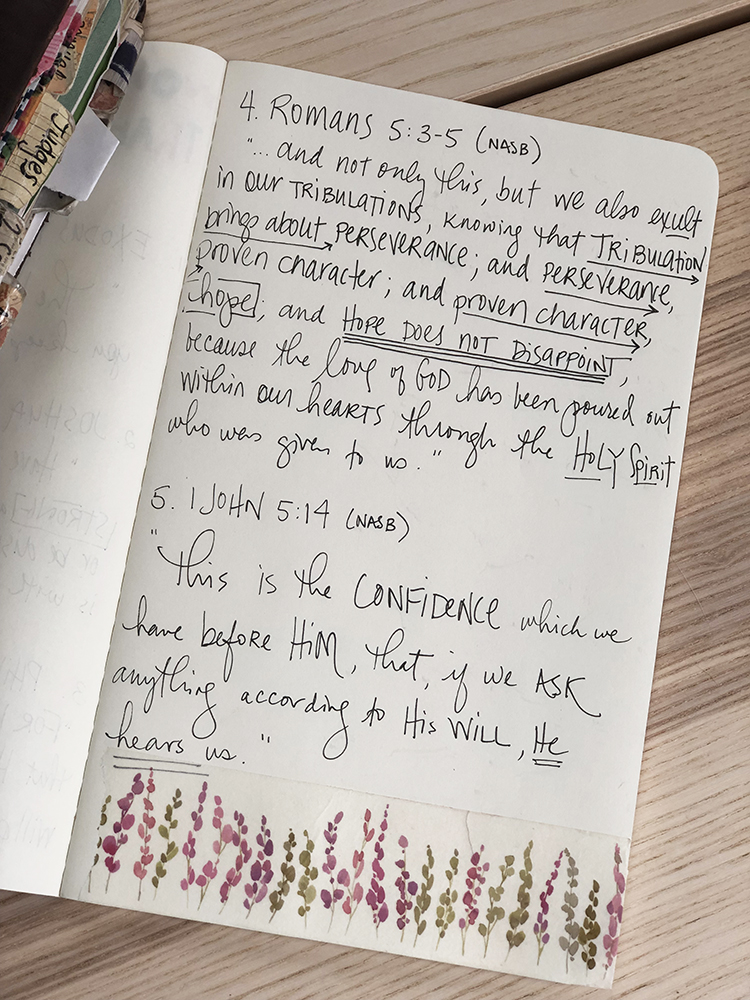 Judges
4. Romans 5:3-5 (NASB)
"... and not only this, but we also exult
in our TRIBULATIONS, knowing that TRIBULATION
brings about PERSEVERANCE; and PERSEVERANCE,
proven character; and proven character,
hope; and HOPE DOES NOT DISAPPOINT,
because the love of GOD has been poured out
within our hearts through the HOLY Spirit
who was given to us."
5. 1 JOHN 5:14 (NASB)
"This is the CONFIDENCE which we
have before HIM, that, if we ASK
anything according to His WILL, He
hears us."